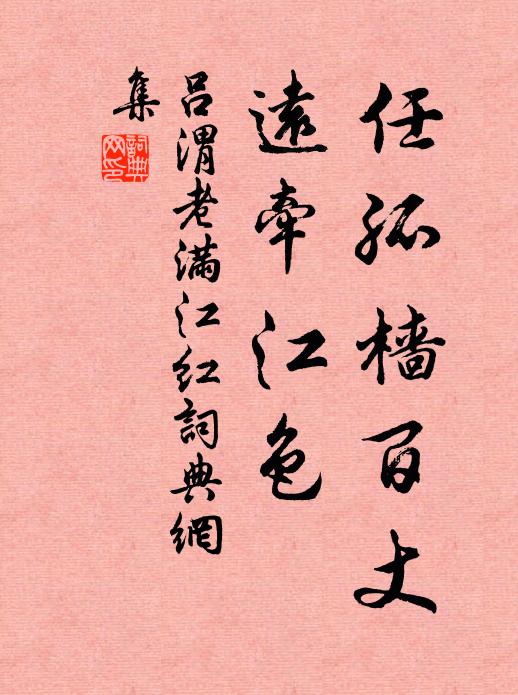 任孤檣百丈
遠牽江色
呂渭老滿江紅詞典網
集
詞典
网印